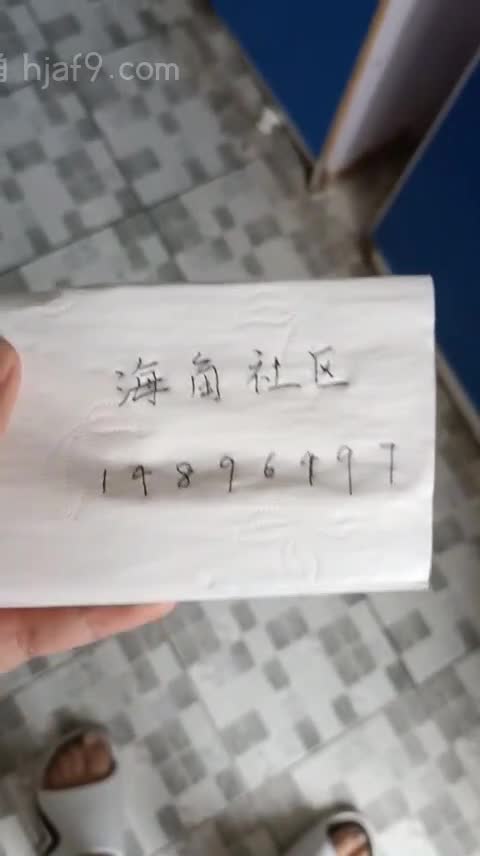 hjaf9.com
海角社区
19896997